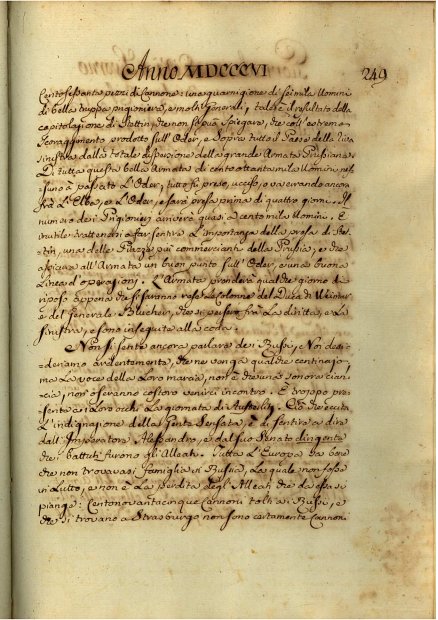 Anno MDCCCVI
249
Centosessanta pezzi di Cannone: una guarnigione di sei mila Uomini
di bella truppa prigioniera, e molti Generali; tale è il resultato della
capitolazione di Stettin, che non si può spiegare, che coll'estremo
scoraggimento prodotto sull'Oder, e sopra tutto il Paese della riva
sinistra dalla totale dispersione della grande Armata Prussiana.
Di tutta questa bella Armata di cento ottanta mila Uomini nes=
=suno à passato l'Oder; tutto fù preso, ucciso, o va errando ancora
frà l'Elba, e l'Oder, e sarà preso prima di quattro giorni. Il
numero dei Prigionieri arriverà quasi a cento mila Uomini. È
inutile trattenersi a far sentire l'importanza della presa di Stet=
=tin, una delle Piazze più commercianti della Prussia, e che
assicura all'Armata un buon punto sull'Oder, e una buona
Linea d'operazioni. L'Armata prenderà qualche giorno di
riposo appena che si saranno rese le Colonne del Duca di Weimar
e del Generale Blucher, che si frà la diritta, e la
sinistra, e sono inseguite alla coda.
Non si sente ancora parlare dei Russi, e Noi desi=
=deriamo ardentemente, che ne venga qualche centinajo,
ma la voce della loro marcia, non è che una sonora cian=
=cia; non oseranno costoro venirci incontro. È troppo pre=
=sente ai loro occhi la giornata di Austerlitz. Ciò che eccita
l'indignazione della Gente Sensata, è di sentire a dire
dall'Imperatore Alessandro, e dal suo Senato dirigente
che i battuti furono gli Alleati. Tutta l'Europa sà bene
che non trovavasi famiglia in Russia, la quale non fosse
in lutto, e non è la perdita degli Alleati che da essa si
piange: Centonovantacinque Cannoni tolti ai Russi, e
che si trovano a Strasburgo non sono certamente Cannoni